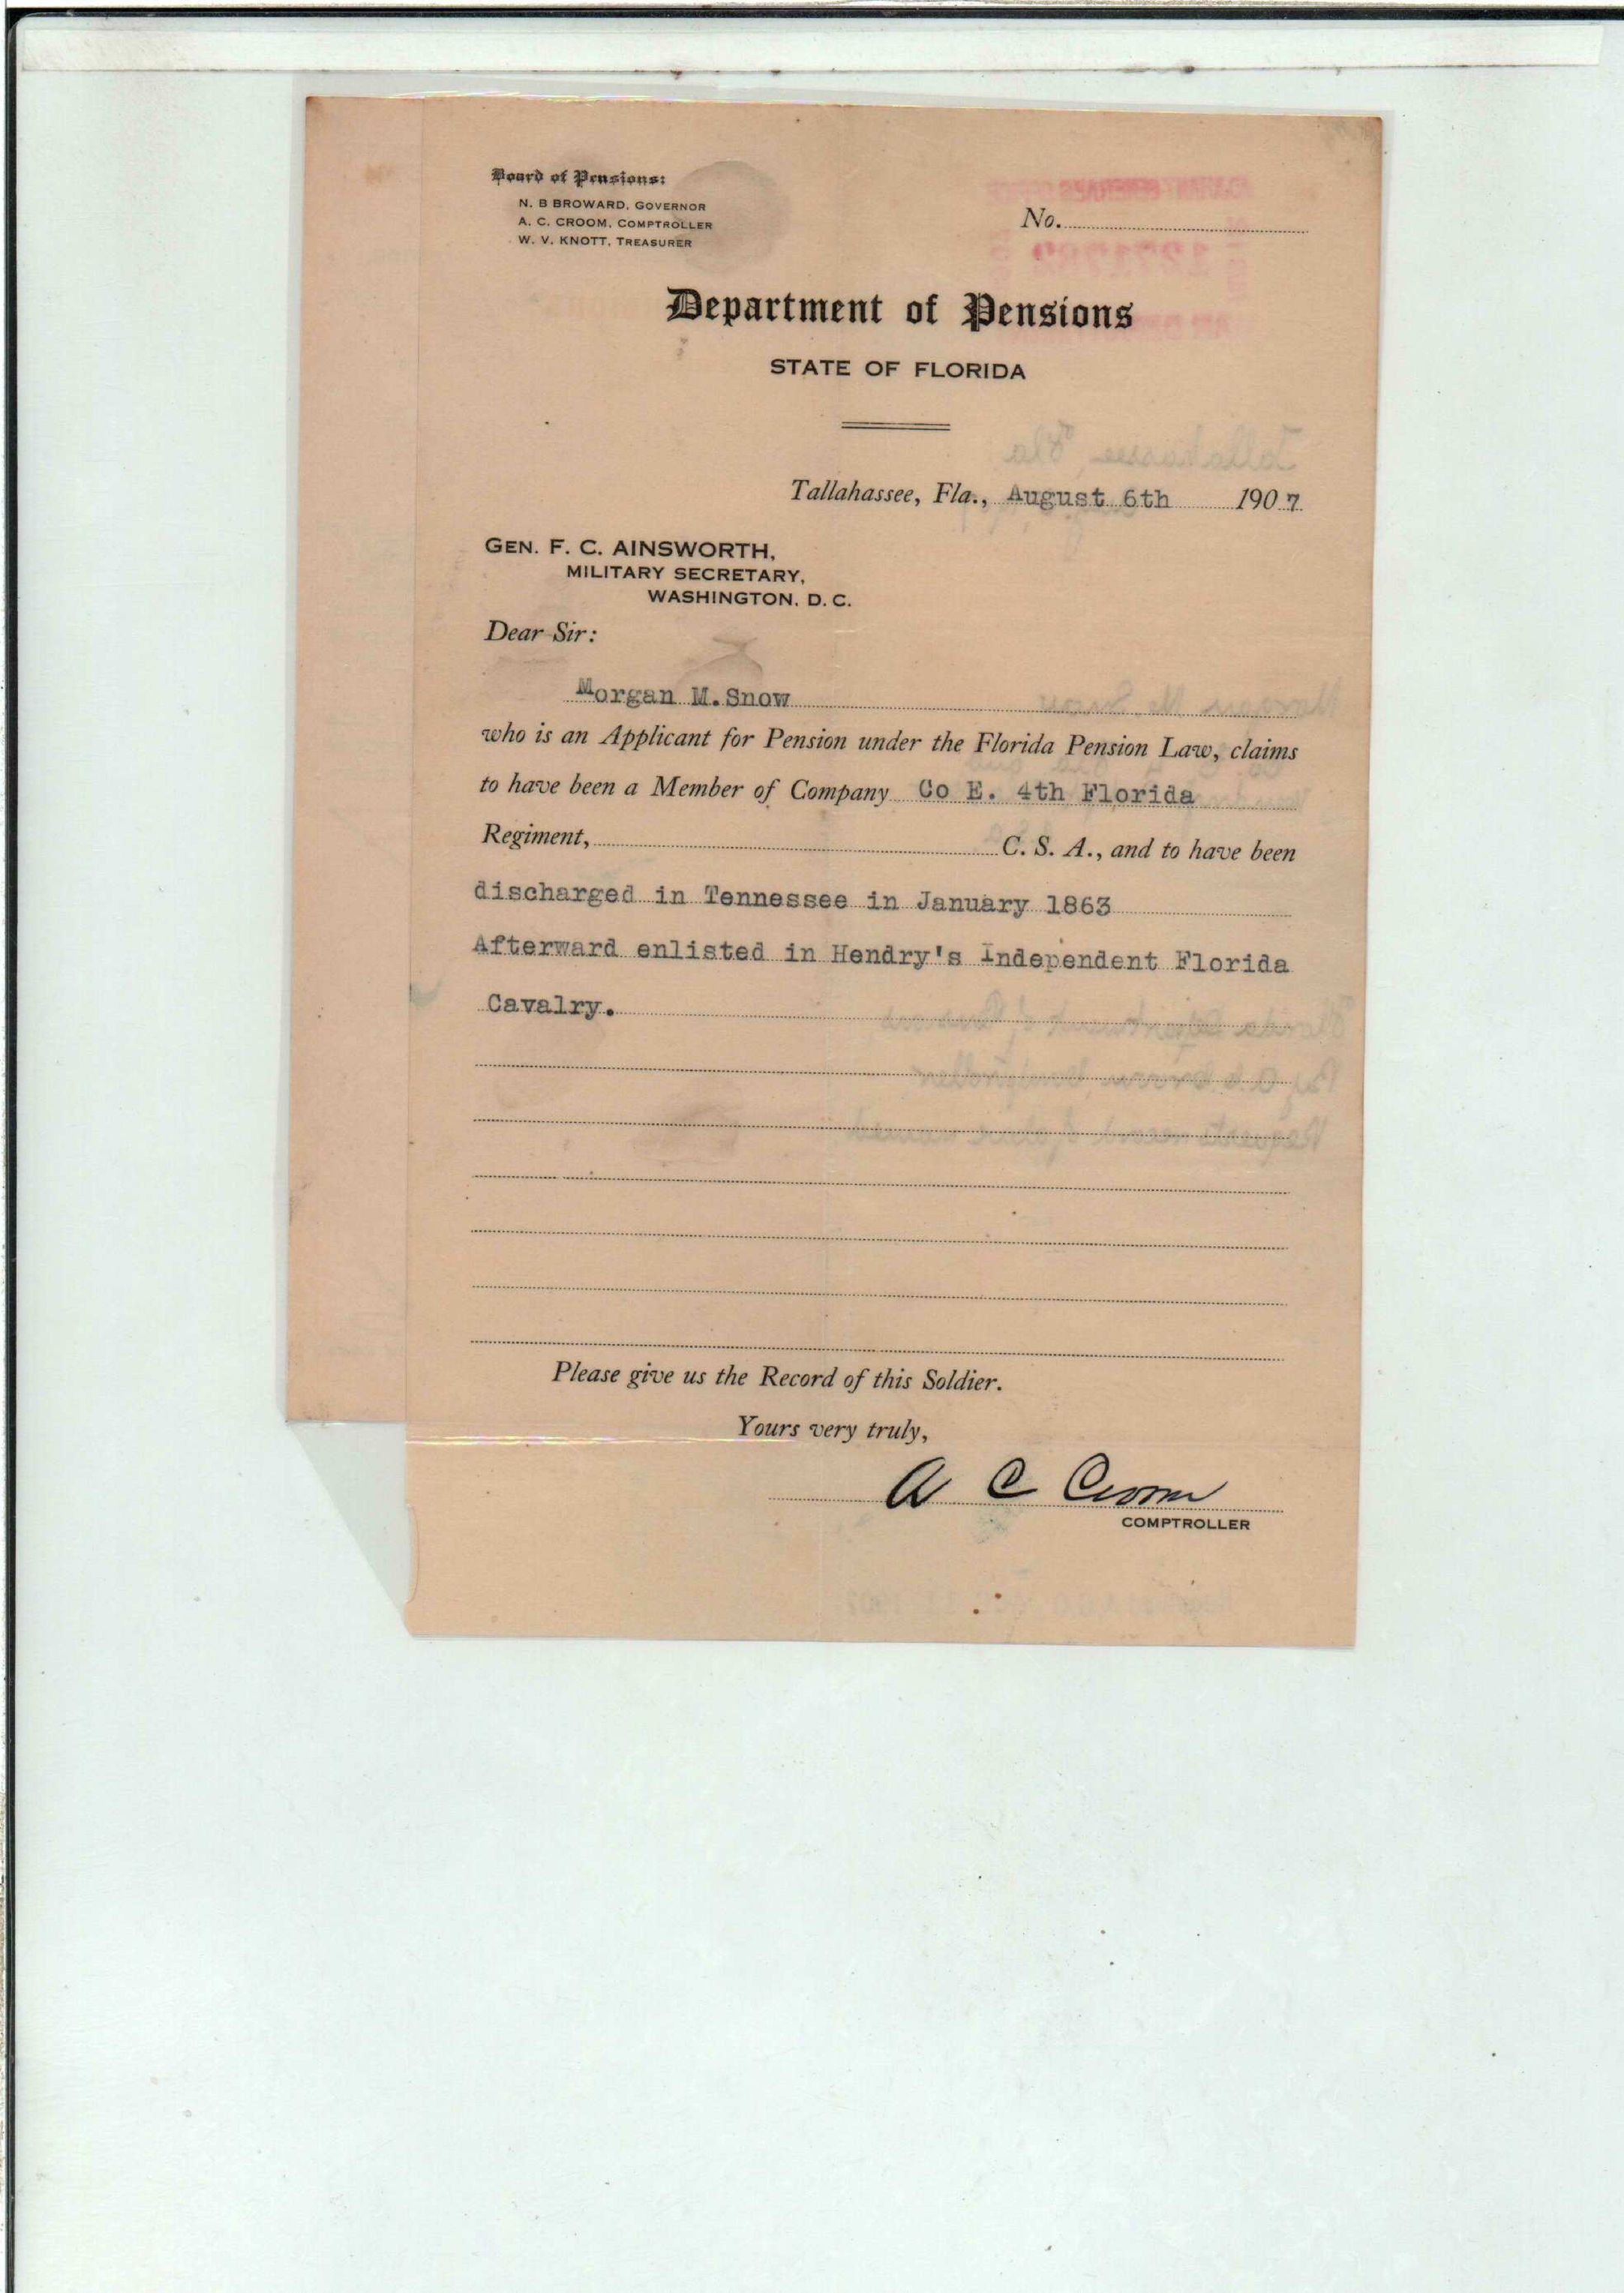 Board of Pensions:
N. B BROWARD, GOVERNOR
A. C. CROOM, COMPTROLLER
W. V. KNOTT, TREASURER
No.
Department of Pensions
STATE OF FLORIDA
Tallahassee, Fla., August 6th 1907
GEN. F. C. AINSWORTH,
MILITARY SECRETARY,
WASHINGTON, D. C.
Dear Sir:
Morgan M. Snow
who is an Applicant for Pension under the Florida Pension Law, claims
to have been a Member of Company Co E. 4th Florida
Regiment, C. S. A., and to have been
discharged in Tennessee in January 1863
Afterward enlisted in Hendry's Independent Florida
Cavalry.
Please give us the Record of this Soldier.
Yours very truly,
A C Croom
COMPTROLLER